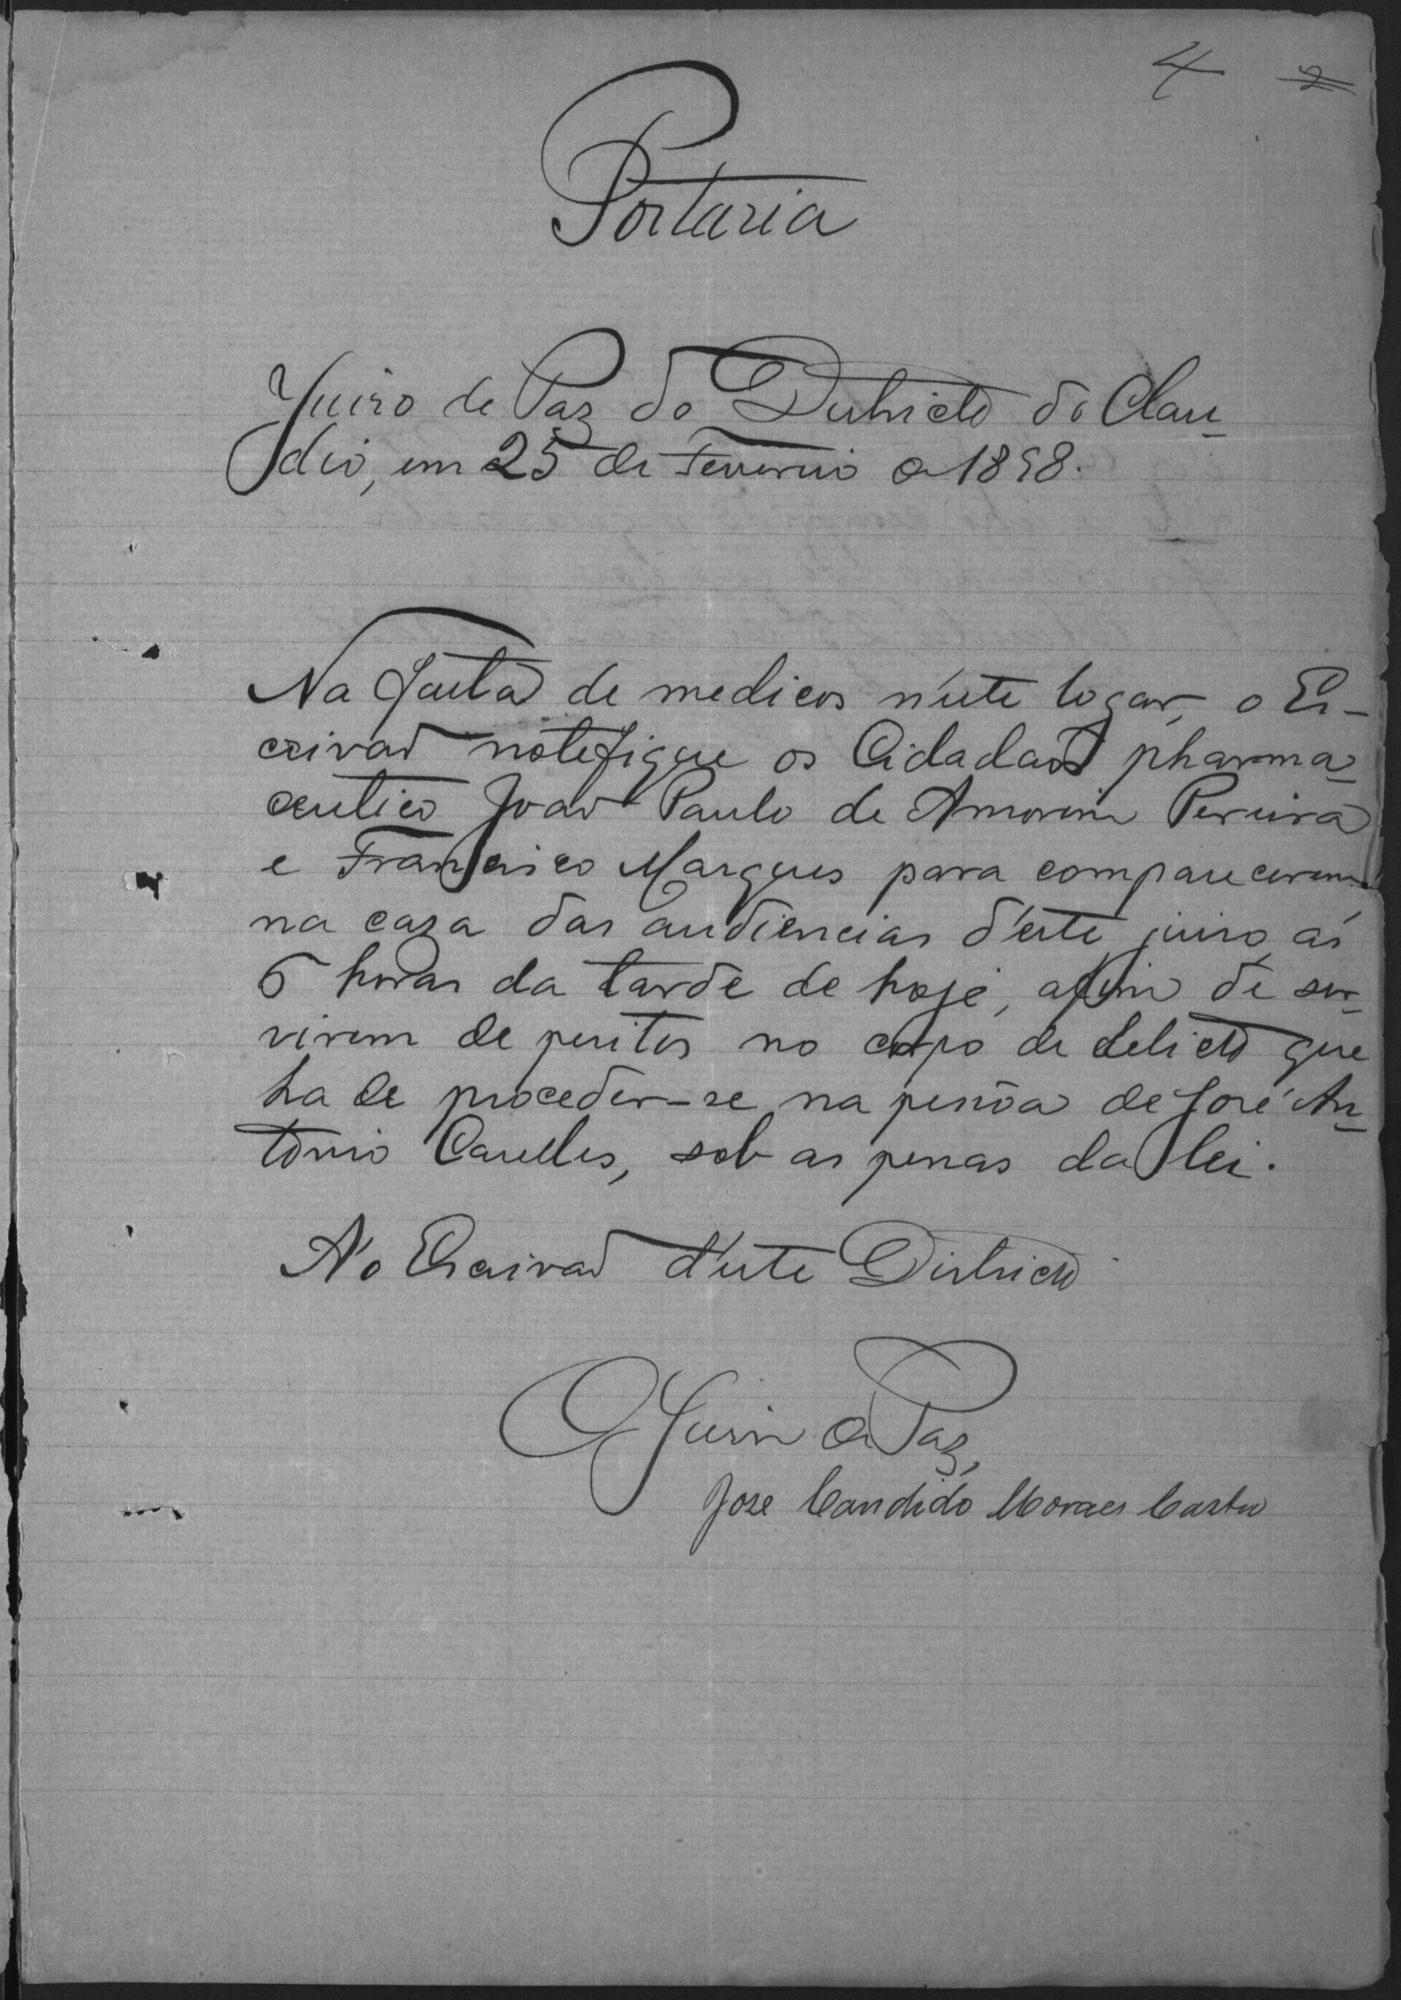 4 2
Portaria
Juizo de Paz do Districto do Clau-
dio, em 25 de Fevereiro de 1898.
Na falta de medicos n'este logar, o Es-
crivão notefique os Cidadãos pharma-
ceutico João Paulo de Amorim Pereira
e Francisco Marques para comparecerem
na caza das audiencias d'este juizo, ás
6 horas da tarde de hoje, afim de ser-
virem de peritos no corpo de delicto que
ha de proceder-se na pessôa de José An-
tonio , sob as penas da lei.
Ao Escrivão d'este Districto
O Juiz de Paz,
Jose Candido Moraes Castro